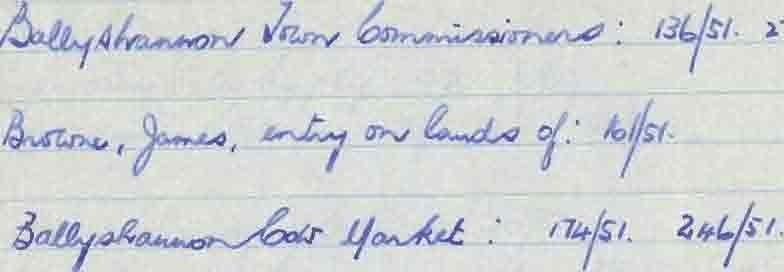 Ballyshannon Town Commissioners: 136/51. 2
Browne, James, entry on lands of: 161/51.
Ballyshannon Cow Market: 174/51. 246/51.